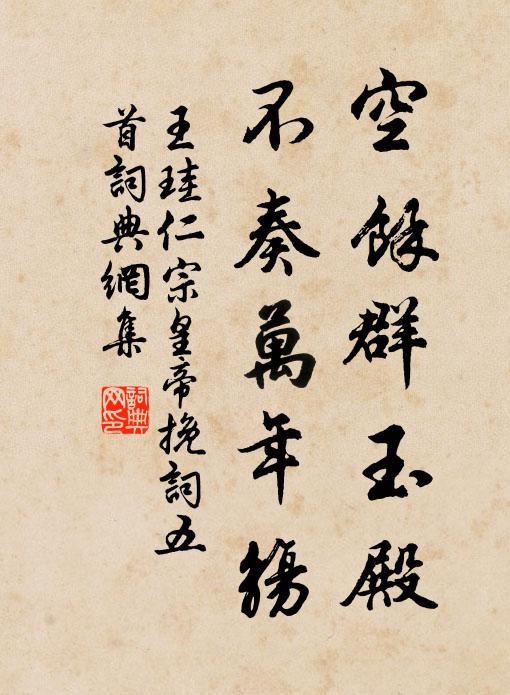 空餘群玉殿
不奏萬年觴
王珪仁宗皇帝挽詞五
首詞典網集
詞典網印